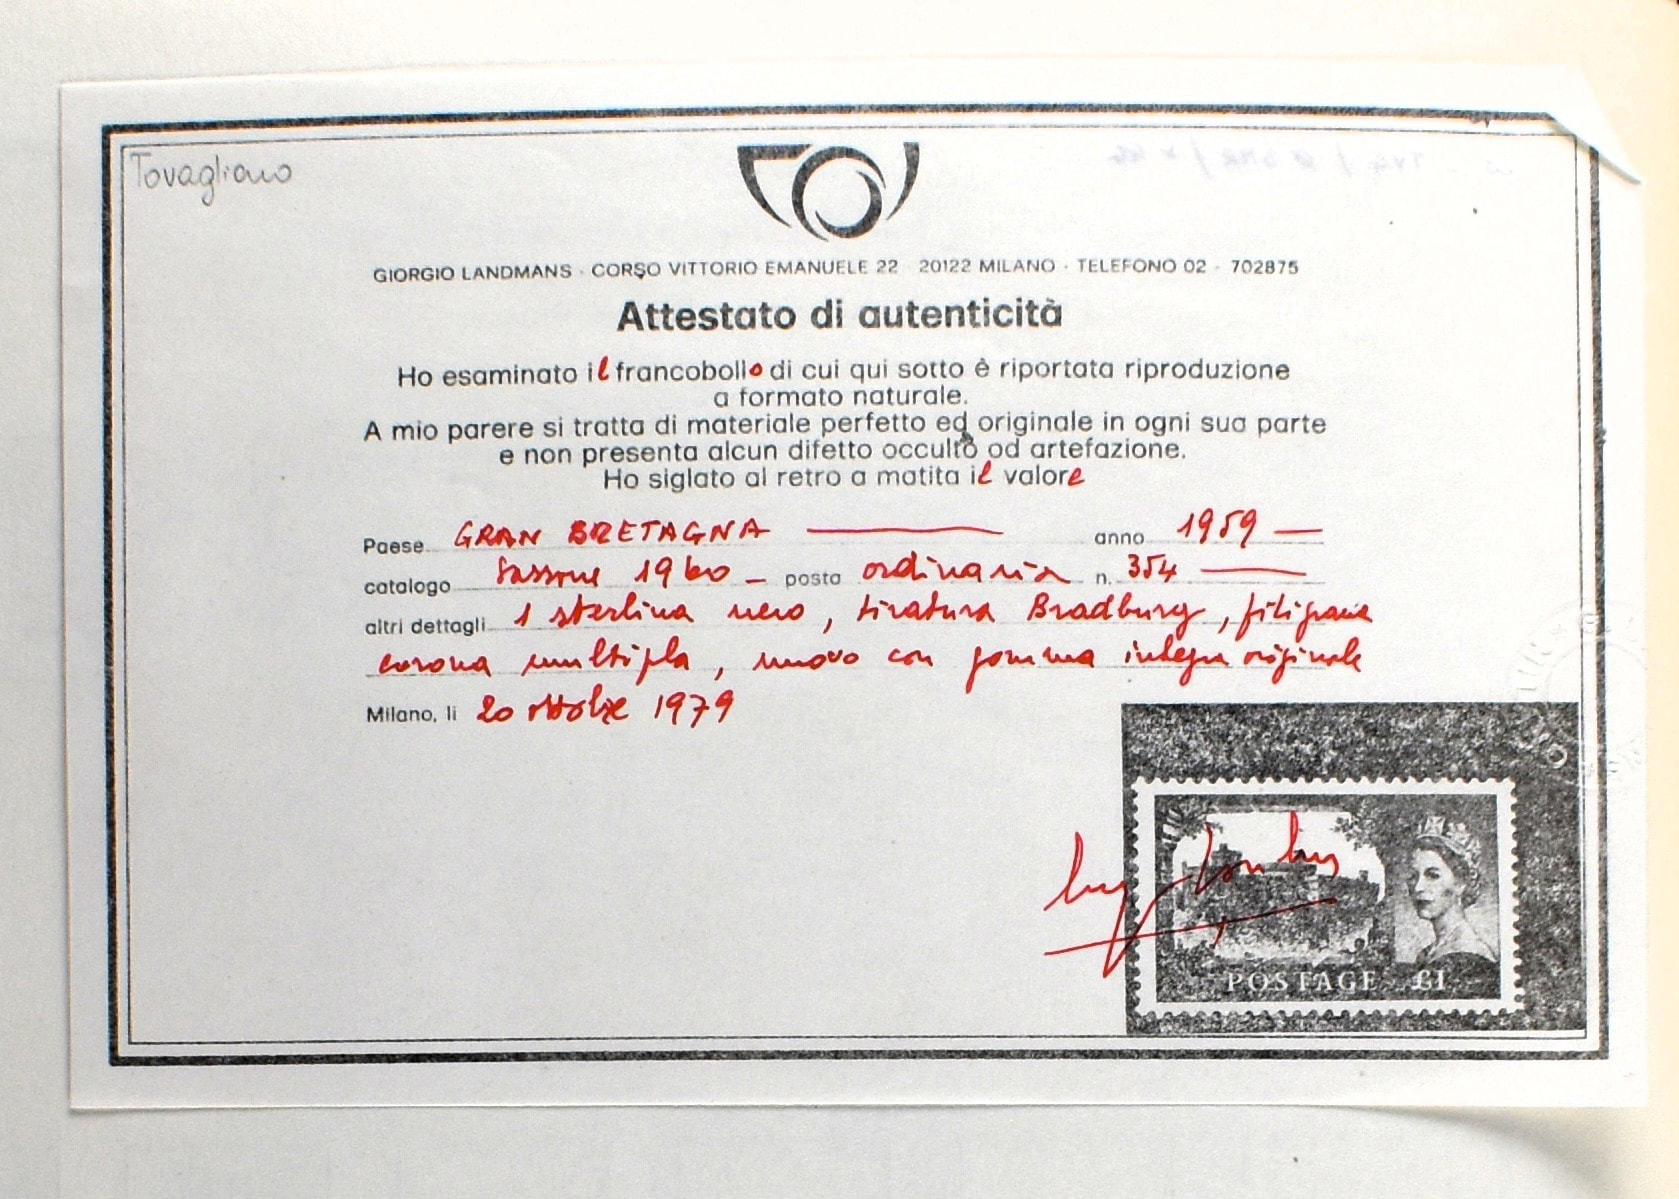 Tovagliano
GIORGIO LANDMANS · CORSO VITTORIO EMANUELE 22 · 20122 MILANO · TELEFONO 02 - 702875
Attestato di autenticità
Ho esaminato il francobollo di cui qui sotto è riportata riproduzione
a formato naturale.
A mio parere si tratta di materiale perfetto ed originale in ogni sua parte
e non presenta alcun difetto occulto od artefazione.
Ho siglato al retro a matita il valore
Paese GRAN BRETAGNA anno 1959
catalogo Sassone 1960 posta ordinaria n. 354
altri dettagli 1 sterlina nero, tiratura Bradbury, filigrana
corona multipla, nuovo con gomma integra originale
Milano, li 20 ottobre 1979
POSTAGE £1